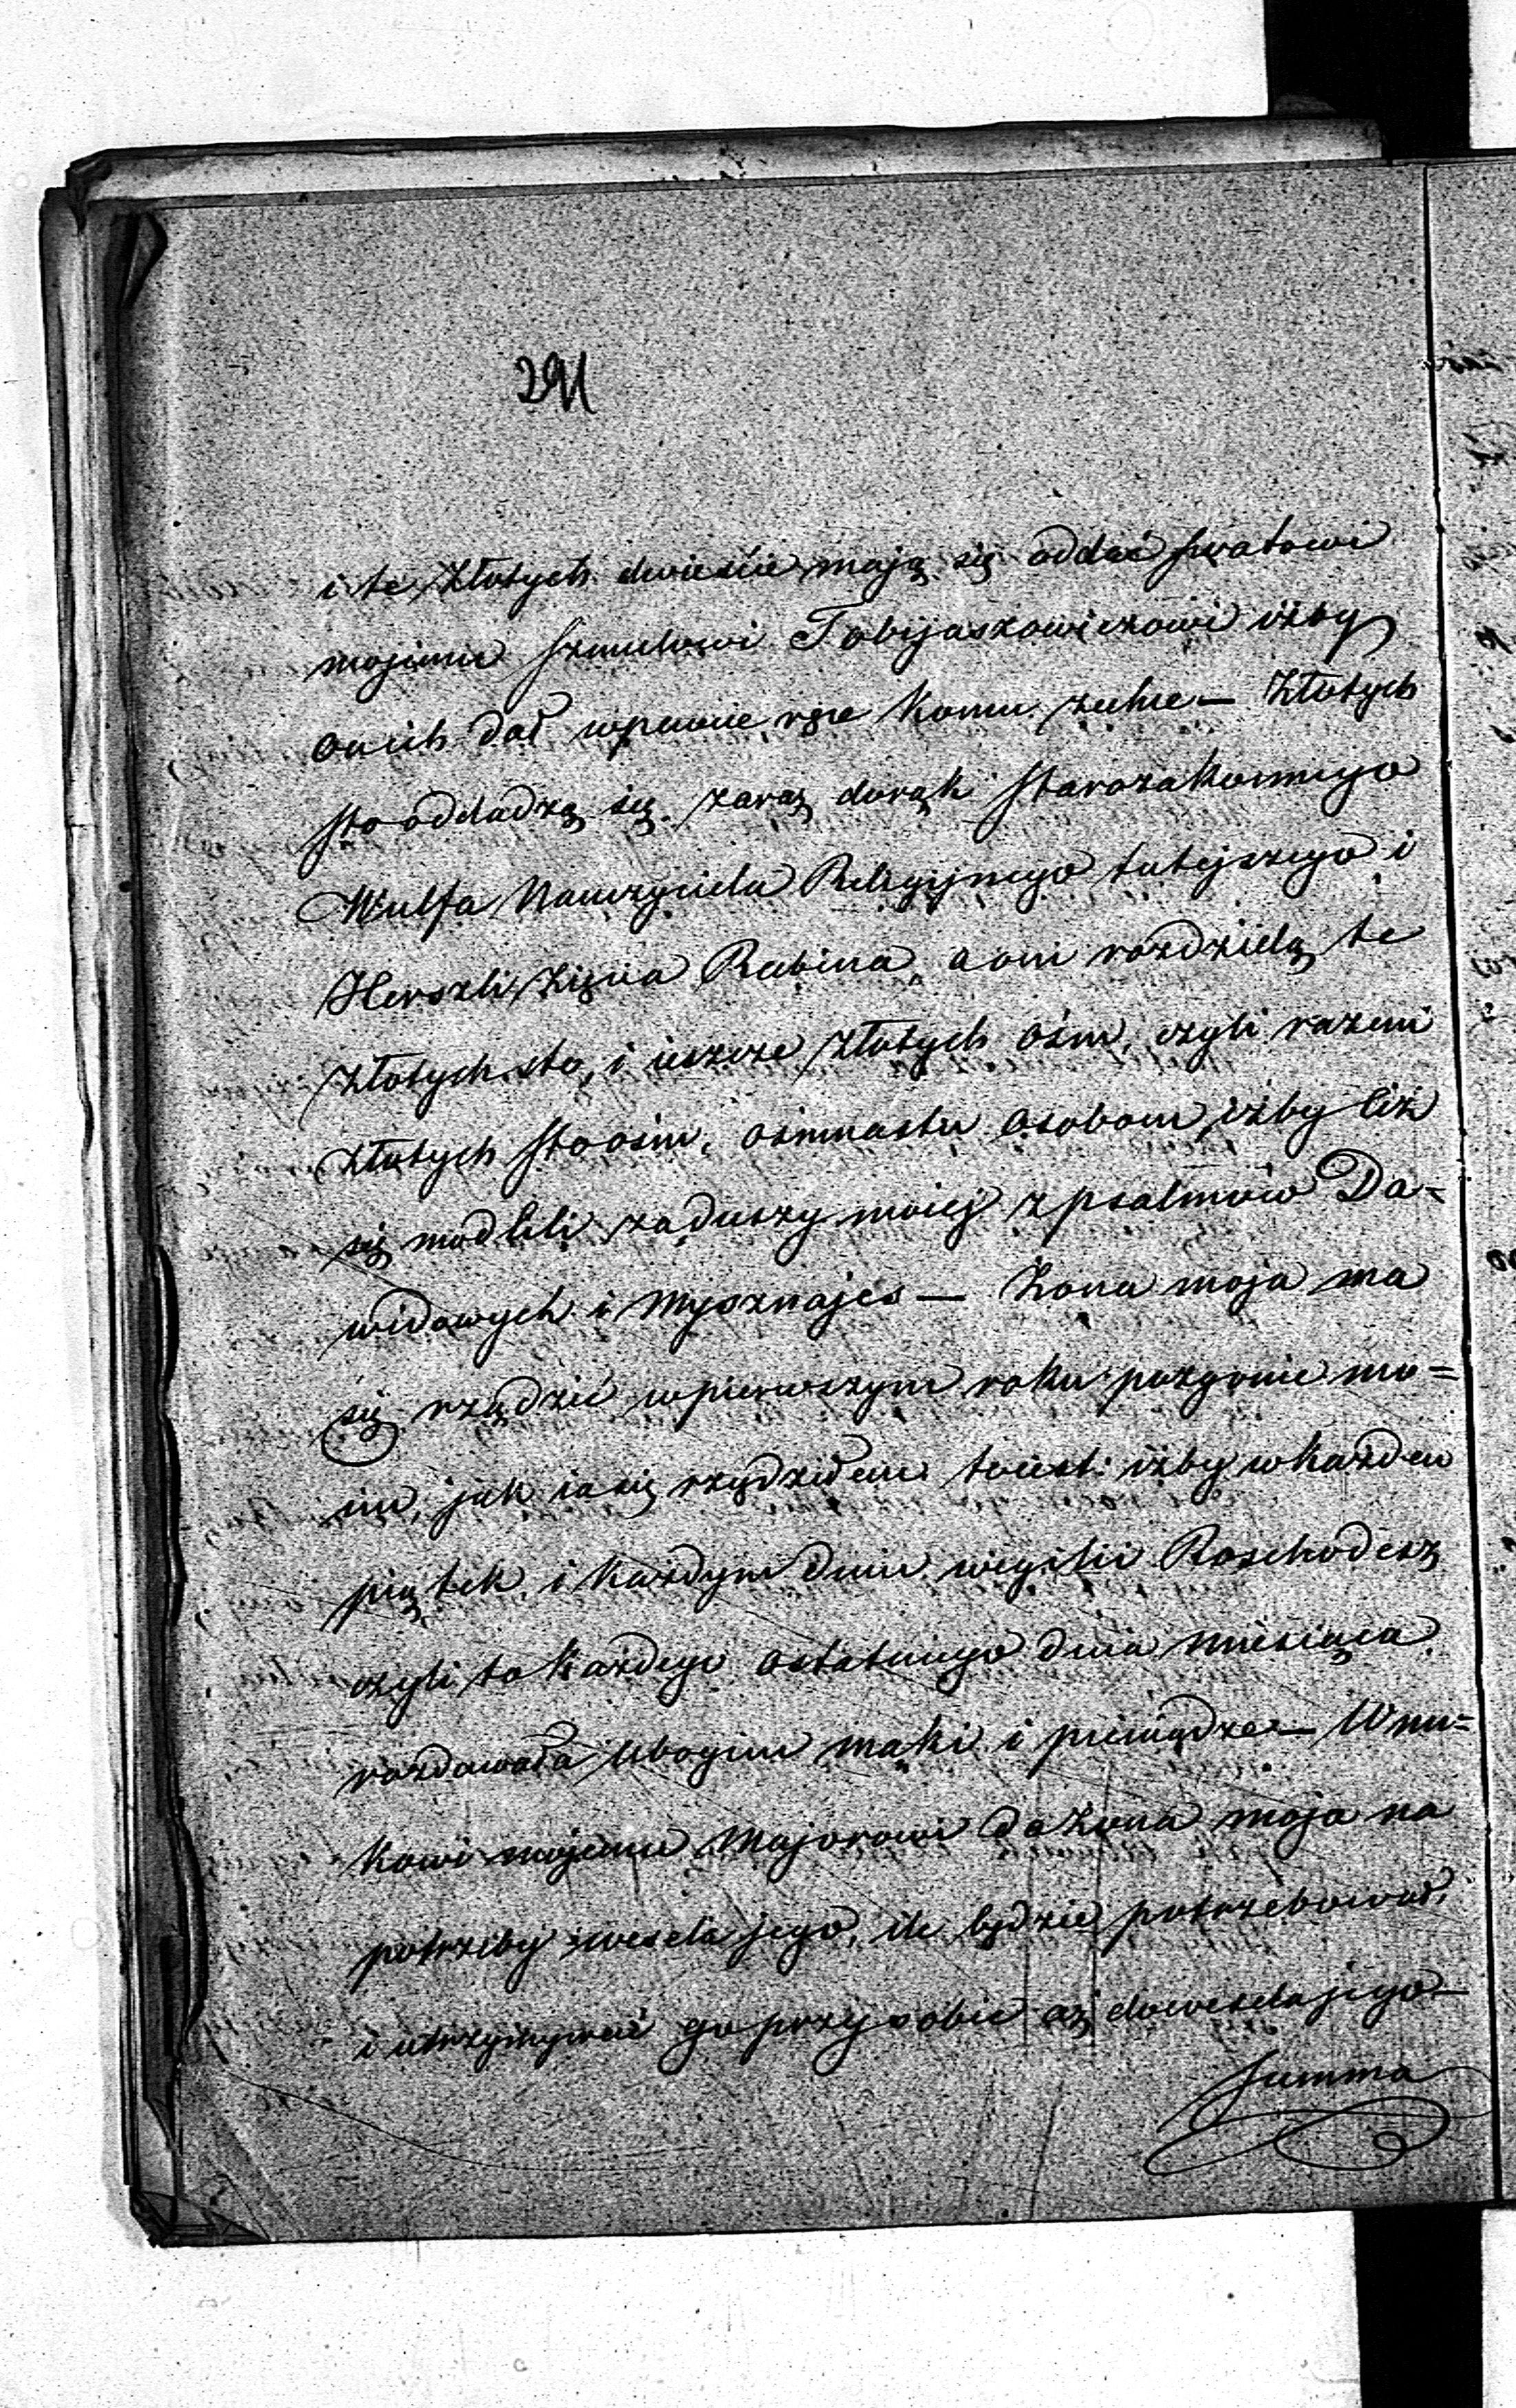 291
i te Złotych dwieście mają się oddać swatowi
mojemu Szmulowi Tobyjaszowiczowi iżby
onich dał wpewne ręce komu zechce — Złotych
sto oddadzą się zaraz dorąk Starozakonnego
Wulfa Nauczyciela Religijnego tutejszego i
Herszli Zięcia Rabina, aoni rozdzielą te
Złotych sto, i ieszcze Złotych ośm, czyli razem
Złotych stoośm, ośmnastu osobom, iżby ciż
się modlili zaduszy moiej zpsalmów Da=
widowych i Mysznajes — Żona moja ma
się rządzić wpierwszym roku pozgonie mo=
im, jak iasię rządziłem toiest: iżby wkażden
piątek, i każdym dniu wigilii Roschodesz
czyli to każdego ostatniego dnia miesiąca
rozdawała Ubogim mąki i pieniądze — Wnu=
kowi mojemu Majorowi da Żona moja na
potrzeby wesela jego, ile będzie potrzebował,
i utrzymywać go przy sobie aż dowesela jego —
Summa